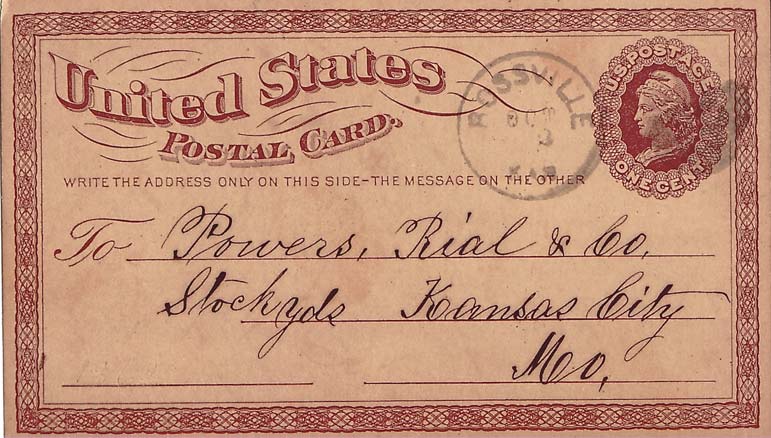 United States
POSTAL CARD.
WRITE THE ADDRESS ONLY ON THIS SIDE-THE MESSAGE ON THE OTHER
U.S. POSTAGE
ONE CENT
ROSSVILLE
OCT
KAS
To Powers, Rial & Co.
Stockyds Kansas City
Mo,